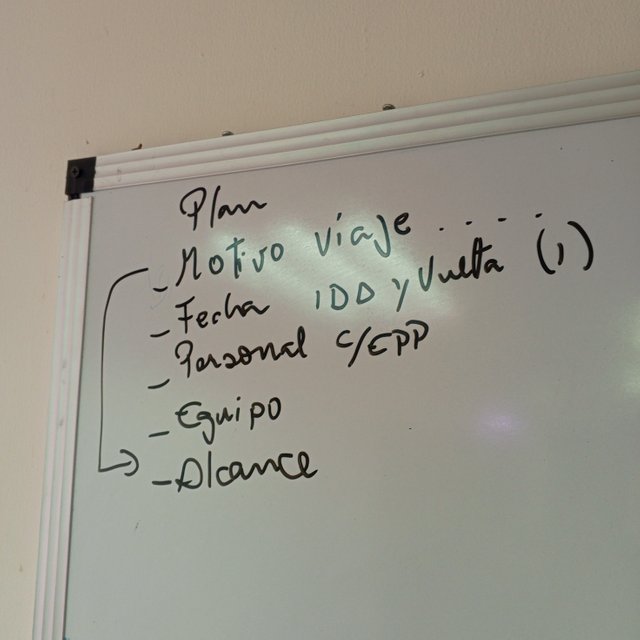 Plan
- Motivo viaje . . . .
- Fecha IDD y Vuelta (1)
- Personal c/EPP
- Equipo
- Alcance